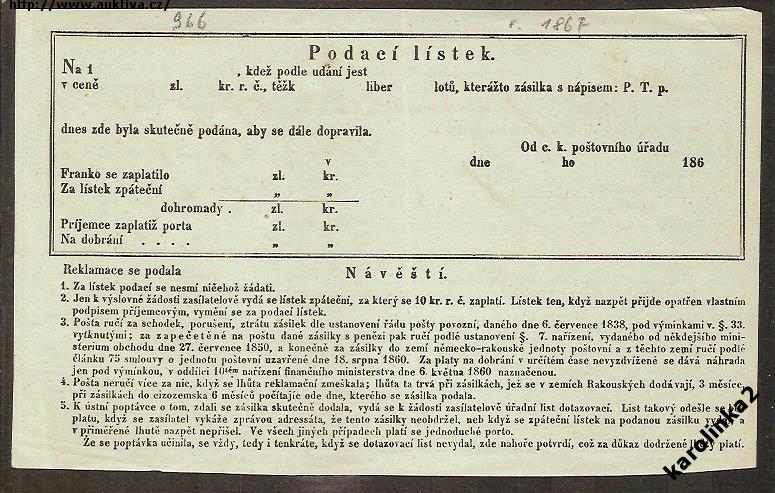 http://www.auktiva.cz/
966
r. 1867
Podací lístek.
Na 1 , kdež podle udání jest
v ceně zl. kr. r. č., těžk liber lotů, kterážto zásilka s nápisem: P. T. p.
dnes zde byla skutečně podána, aby se dále dopravila.
Od c. k. poštovního úřadu
dne ho 186
v
Franko se zaplatilo zl. kr.
Za lístek zpáteční „ „
dohromady . zl. kr.
Príjemce zaplatiž porta zl. kr.
Na dobrání . . . . „ „
Reklamace se podala
Návěští.
1. Za lístek podací se nesmí ničehož žádati.
2. Jen k výslovné žádosti zasílatelově vydá se lístek zpáteční, za který se 10 kr. r. č. zaplatí. Lístek ten, když nazpět přijde opatřen vlastním
podpisem příjemcovým, vymění se za podací lístek.
3. Pošta ručí za schodek, porušení, ztrátu zásilek dle ustanovení řádu pošty povozní, daného dne 6. července 1838, pod výminkami v. §. 33.
vytknutými; za zapečetěné na poštu dané zásilky s penězi pak ručí podlé ustanovení §. 7. nařízení, vydaného od někdejšího mini-
sterium obchodu dne 27. července 1850, a konečně za zásilky do zemí německo-rakouské jednoty poštovní a z těchto zemí ručí podlé
článku 75 smlouvy o jednotu poštovní uzavřené dne 18. srpna 1860. Za platy na dobrání v určitém čase nevyzdvižené se dává náhrada
jen pod výmínkou, v oddílci 10tém nařízení finančního ministerstva dne 6. května 1860 naznačenou.
4. Pošta neručí více za nic, když se lhůta reklamační zmeškala; lhůta ta trvá při zásilkách, jež se v zemích Rakouských dodávají, 3 měsíce,
při zásilkách do cizozemska 6 měsíců počítajíc ode dne, kterého se zásilka podala.
5. K ústní poptávce o tom, zdali se zásilka skutečně dodala, vydá se k žádosti zasílatelově úřadní list dotazovací. List takový odešle se bez
platu, když se zasílatel vykáže zprávou adressáta, že tento zásilky neobdržel, neb když se zpáteční lístek na podanou zásilku vydaný a
v přiměřené lhutě nazpět nepřišel. Ve všech jiných případech platí se jednoduché porto.
Že se poptávka učinila, se vždy, tedy i tenkráte, když se dotazovací list nevydal, zde nahoře potvrdí, což za důkaz dodržené lhůty platí.
karolinka2